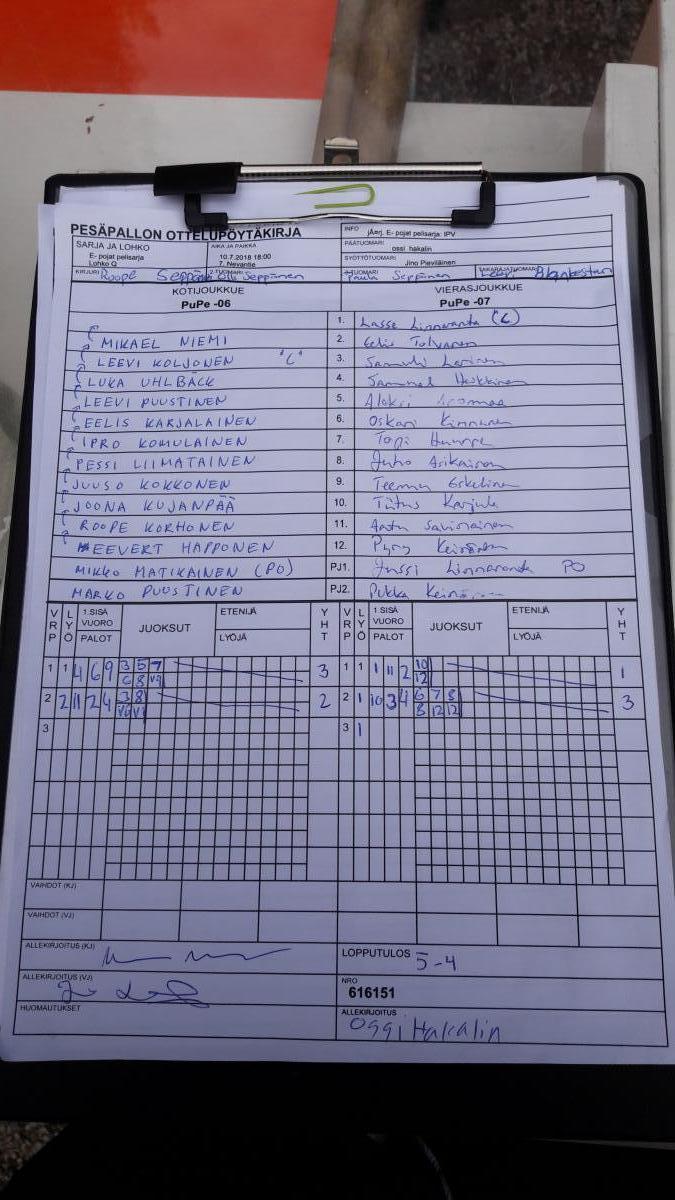 PESÄPALLON OTTELUPÖYTÄKIRJA
INFO jÄerj. E- pojat pelisarja: IPV
SARJA JA LOHKO
E- pojat pelisarja
Lohko Q
AIKA JA PAIKKA
10.7.2018 18:00
7. Nevantie
PÄÄTUOMARI
ossi hakalin
SYÖTTÖTUOMARI Jino Pieviläinen
KIRJURI Roope Seppänen 2-TUOMARI Olli Seppänen 3-TUOMARI Paula Seppänen TAKARAJATUOMARI
KOTIJOUKKUE VIERASJOUKKUE
PuPe -06 PuPe -07
1. Lasse Linnaranta (C)
MIKAEL NIEMI 2. Eelis Tolvanen
LEEVI KOLJONEN "C" 3. Samuli
LUKA UHLBÄCK 4.
LEEVI PUUSTINEN 5. Aleksi
EELIS KARJALAINEN 6. Oskari Kinnunen
IPRO KOMULAINEN 7. Topi
PESSI LIIMATAINEN 8. Juho Asikainen
JUUSO KOKKONEN 9. Teemu Eskelinen
JOONA KUJANPÄÄ 10. Tiitus Karjula
ROOPE KORHONEN 11. Aatu Savinainen
EEVERT HAPPONEN 12. Keinänen
MIKKO MATIKAINEN (PO) PJ1. Jussi Linnaranta PO
MARKO PUUSTINEN PJ2. Pekka Keinänen
VRP LYÖ 1.SISÄ VUORO PALOT JUOKSUT ETENIJÄ LYÖJÄ YHT VRP LYÖ 1.SISÄ VUORO PALOT JUOKSUT ETENIJÄ LYÖJÄ YHT
1 1 4 6 9 3 5 7 3 1 1 1 11 2 10 1
6 8 V9 12
2 2 11 2 4 3 8 2 2 1 10 3 4 6 7 8 3
8 12 12
3 3 1
VAIHDOT (KJ)
VAIHDOT (VJ)
ALLEKIRJOITUS (KJ) LOPPUTULOS 5-4
ALLEKIRJOITUS (VJ) NRO
616151
HUOMAUTUKSET ALLEKIRJOITUS
Ossi Hakalin